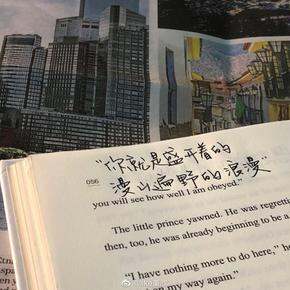 "你就是盛开着的
漫山遍野的浪漫"
056
you will see how well I am obeyed."
The little prince yawned. He was regretti
then, too, he was already beginning to be a
"I have nothing more to do here," he
on my way again."